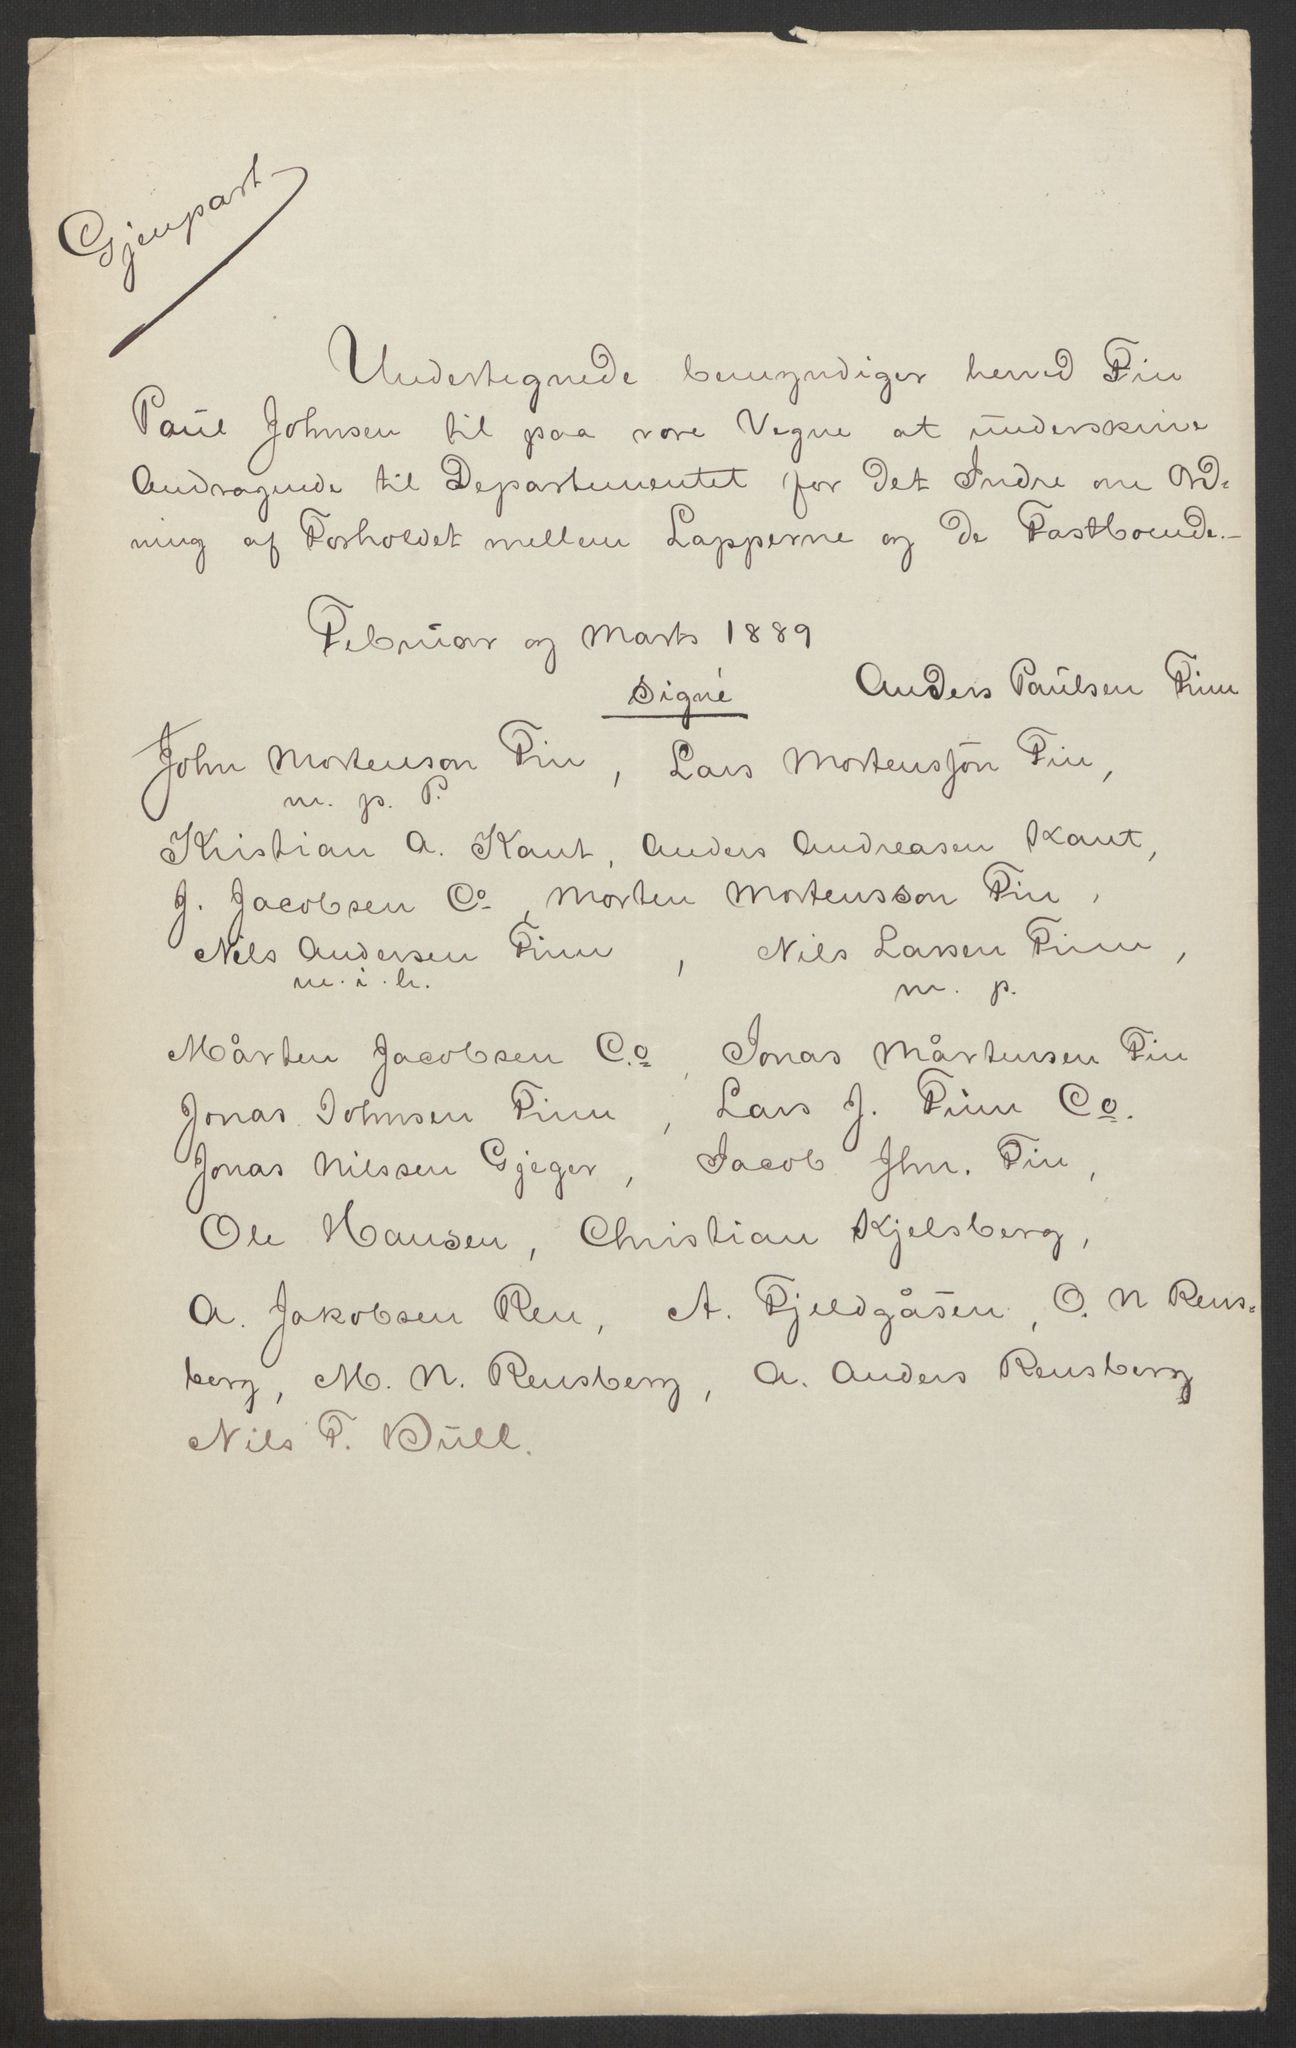 Gjenpart
Undertegnede bemyndiger herved Fin
Paul Johnsen til paa vore Vegne at underskrive
Andragende til Departementet for det Indre om Ord-
ning af Forholdet mellem Lapperne og de Fastboende.-
Februar og Marts 1889
Signé Anders Paulsen Finn
John Mortenson Fin, Lars Mortensson Fin,
m. p. P.
Kristian A. Kant, Anders Andreasen Kant,
J. Jacobsen Co, Morten Mortensson Fin,
Nils Andersen Finn, Nils Larsen Finn,
m. i. h. m. p.
Mårten Jacobsen Co, Jonas Mårtensen Fin
Jonas Johnsen Finn, Lars J. Finn Co.
Jonas Nilssen Gjeger, Jacob Jhn. Fin,
Ole Hansen, Christian Kjelsberg,
A. Jakobsen Ren, A. Fjeldgåsen, O. N Rens-
berg, M. N. Rensberg, A. Anders Rensberg
Nils T. Bull.